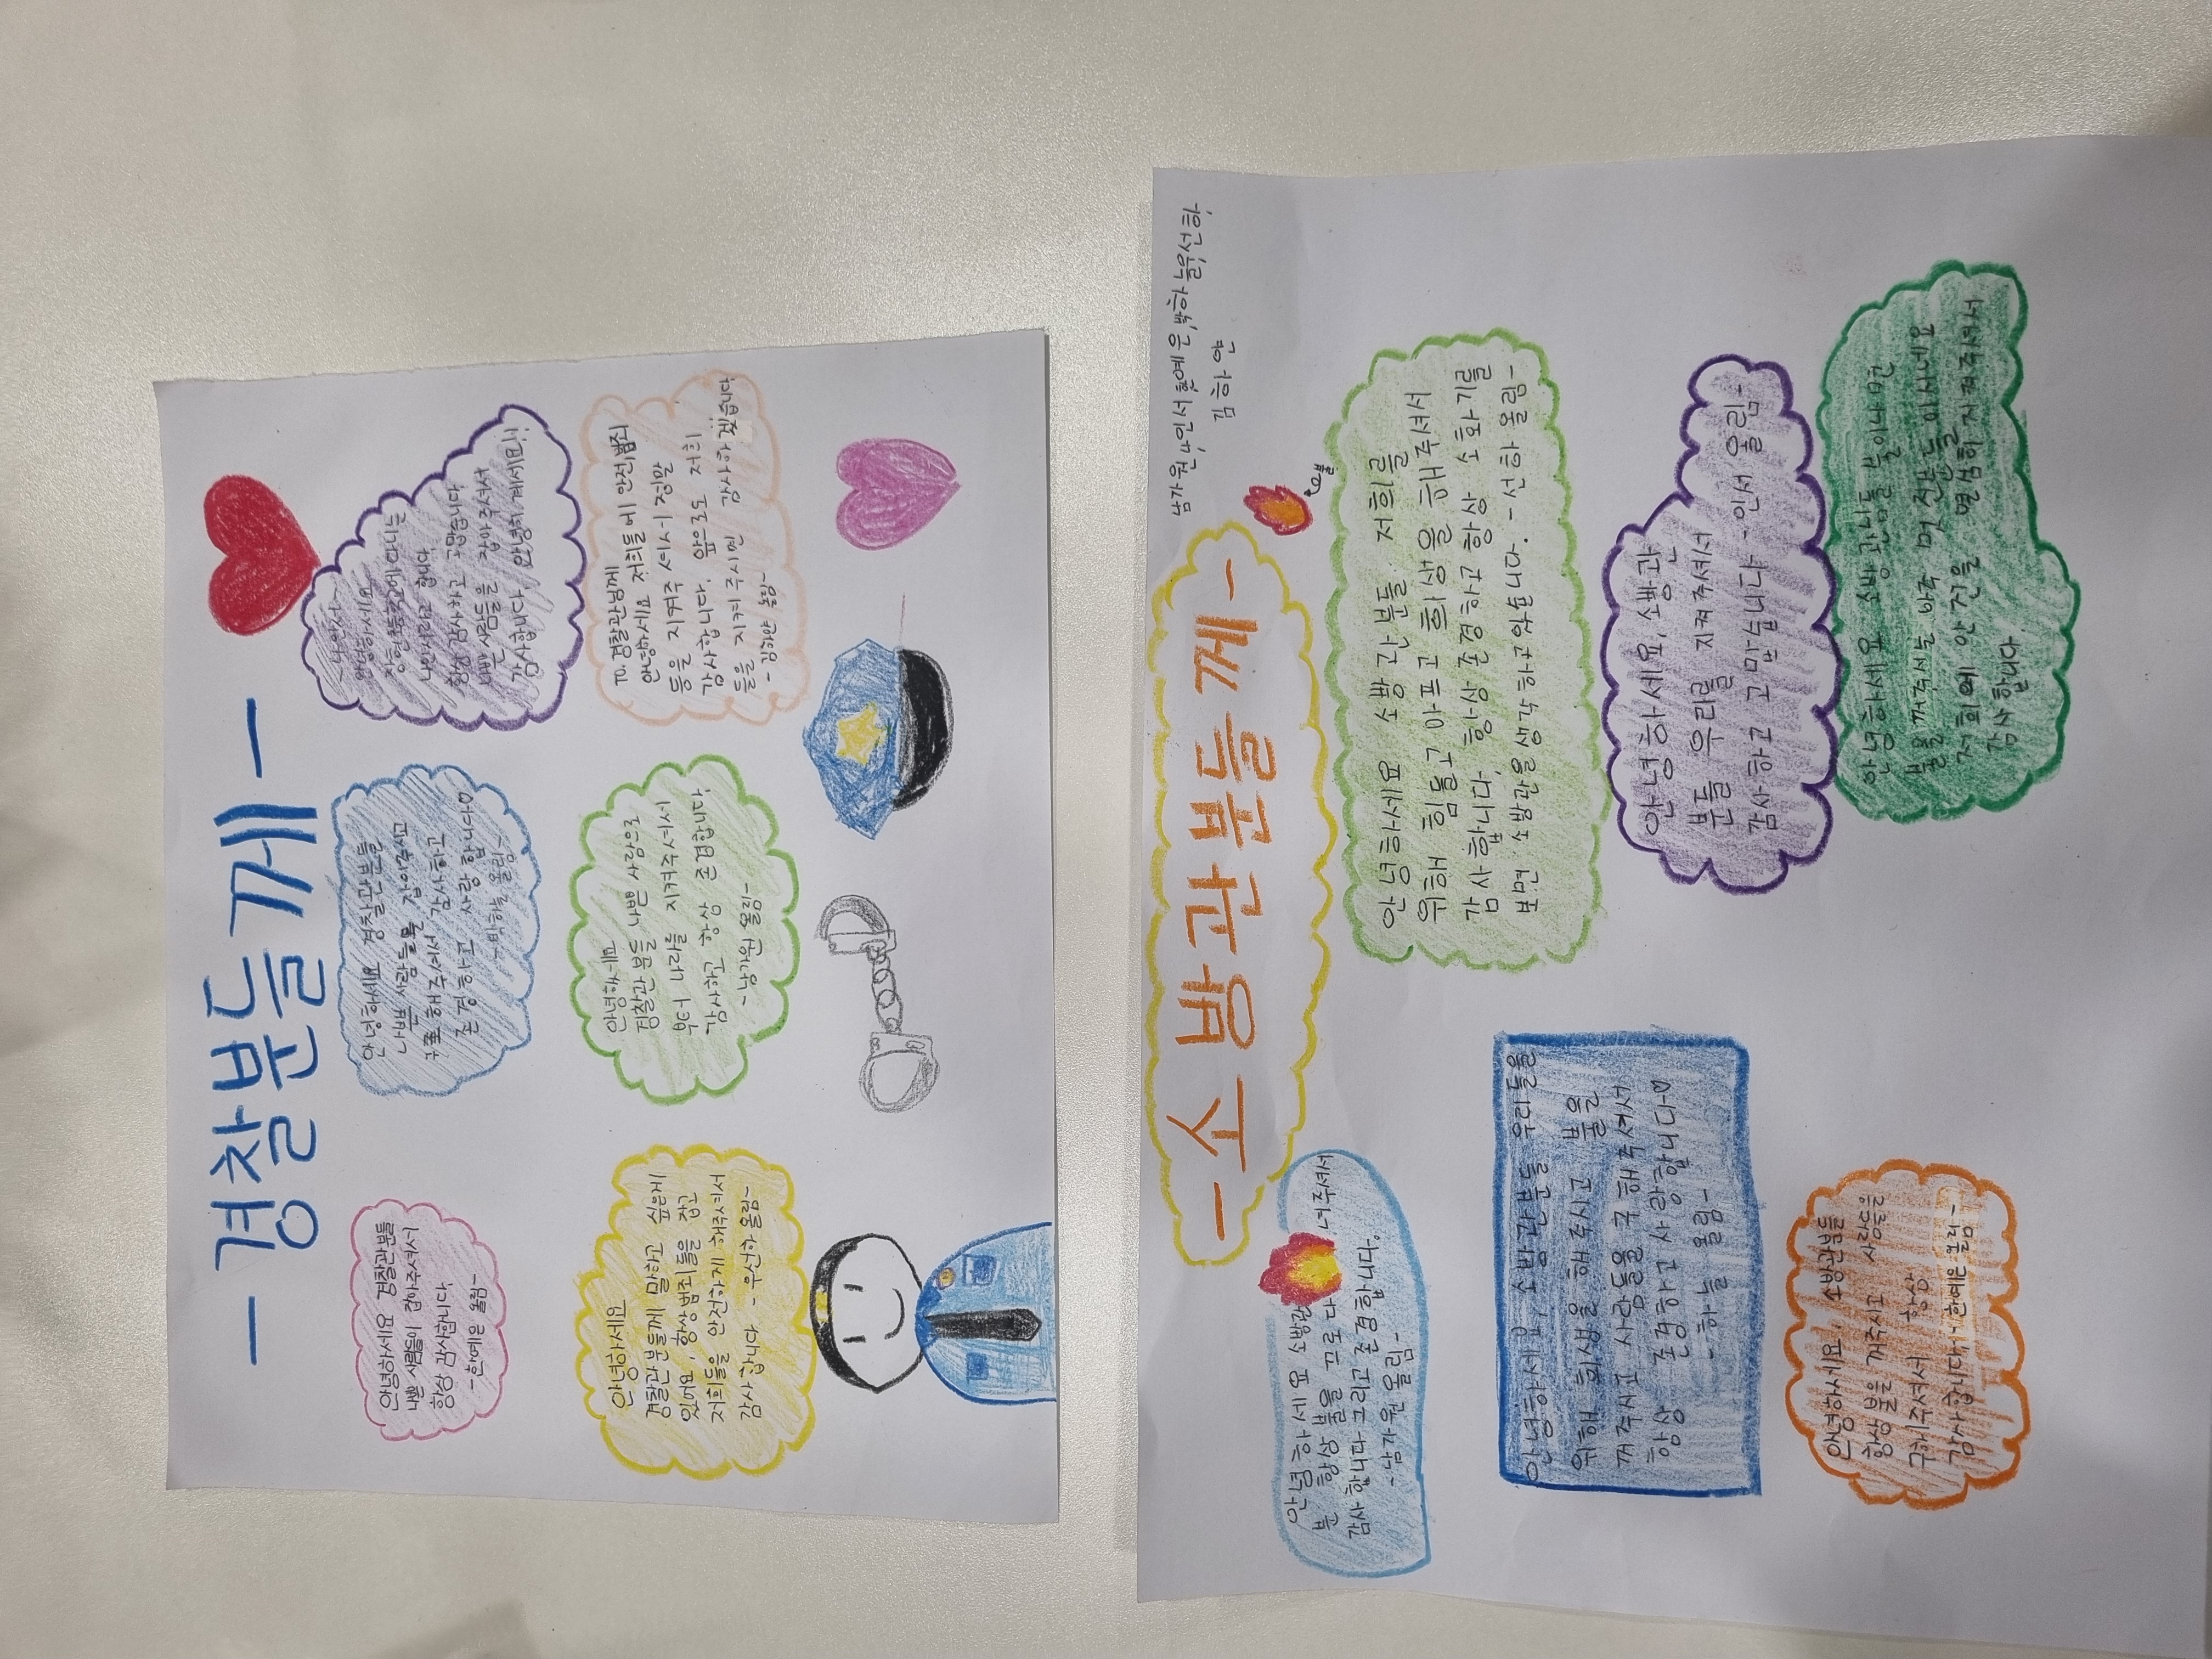 - 경찰분들께 -
안녕하세요 경찰관분들
나쁜 사람들이 잡아주셔서
항상 감사합니다.
- 한예은 올림-
안녕하세요 경찰관분들
나쁜 사람들을 잡아주시고
구조해주셔서 감사하고
존경하고 사랑합니다♡
-박하늘 올림-
-나인서-
안녕하세요
장연초등학교에 다니는
나인서라고 합니다
항상 감사하고 고맙습니다
나쁜 사람들을 잡아주셔서
감사합니다 안녕히계세요!!
안녕하세요
경찰관분들께 말하고 싶은게
있어요, 항상 범죄들을 잡고
저희들을 안전하게 해주셔서
감사합니다 - 우선하 올림-
안녕하세요
경찰관 분들 나쁜 사람으로
부터 나라를 지켜주셔서
감사하고 항상 존경합니다
-남가원 올림-
TO. 경찰관님께
안녕하세요 저희들에 안전,범죄
등을 지켜주셔서 정말
감사합니다. 앞으로도 저희
들을 지켜주시면 감사하겠습니다
- 김하얀 올림-
남가원,나인서,한예은,박하늘,우선하,
김하얀
- 소방관분들께 -
안녕하세요 소방관
분 항상 불을 끄로 다녀주셔서
감사합니다 그리고 존경합니다.
-남가원 올림-
안녕하세요 소방관분들 저희를
위해 힘들고 아프고 희생을 해주셔서
감사합니다, 항상 존경하고 항상 소화기를
보면 소방관을 생각하고와습니다. -선하 올림-
안녕하세요, 소방관분들 우리들을
위해 희생을 해주시고 불을
꺼주시고 사람들을 구해주셔서
항상 존경하고 사랑합니다♡
- 하늘 올림-
안녕하세요, 소방관
분들 우리를 지켜주셔서
감사하고 고맙습니다 -인서 올림-
안녕하세요, 소방관분들
항상 불을 꺼주시고 사람들을
구해주셔서 항상
감사합니다, -한예은 올림-
안녕하세요 소방관님들 불이나면
불을 꺼주시는 아주 멋진분들 이시네요
저희에 안전을 열심히 지켜주셔서
감사합니다